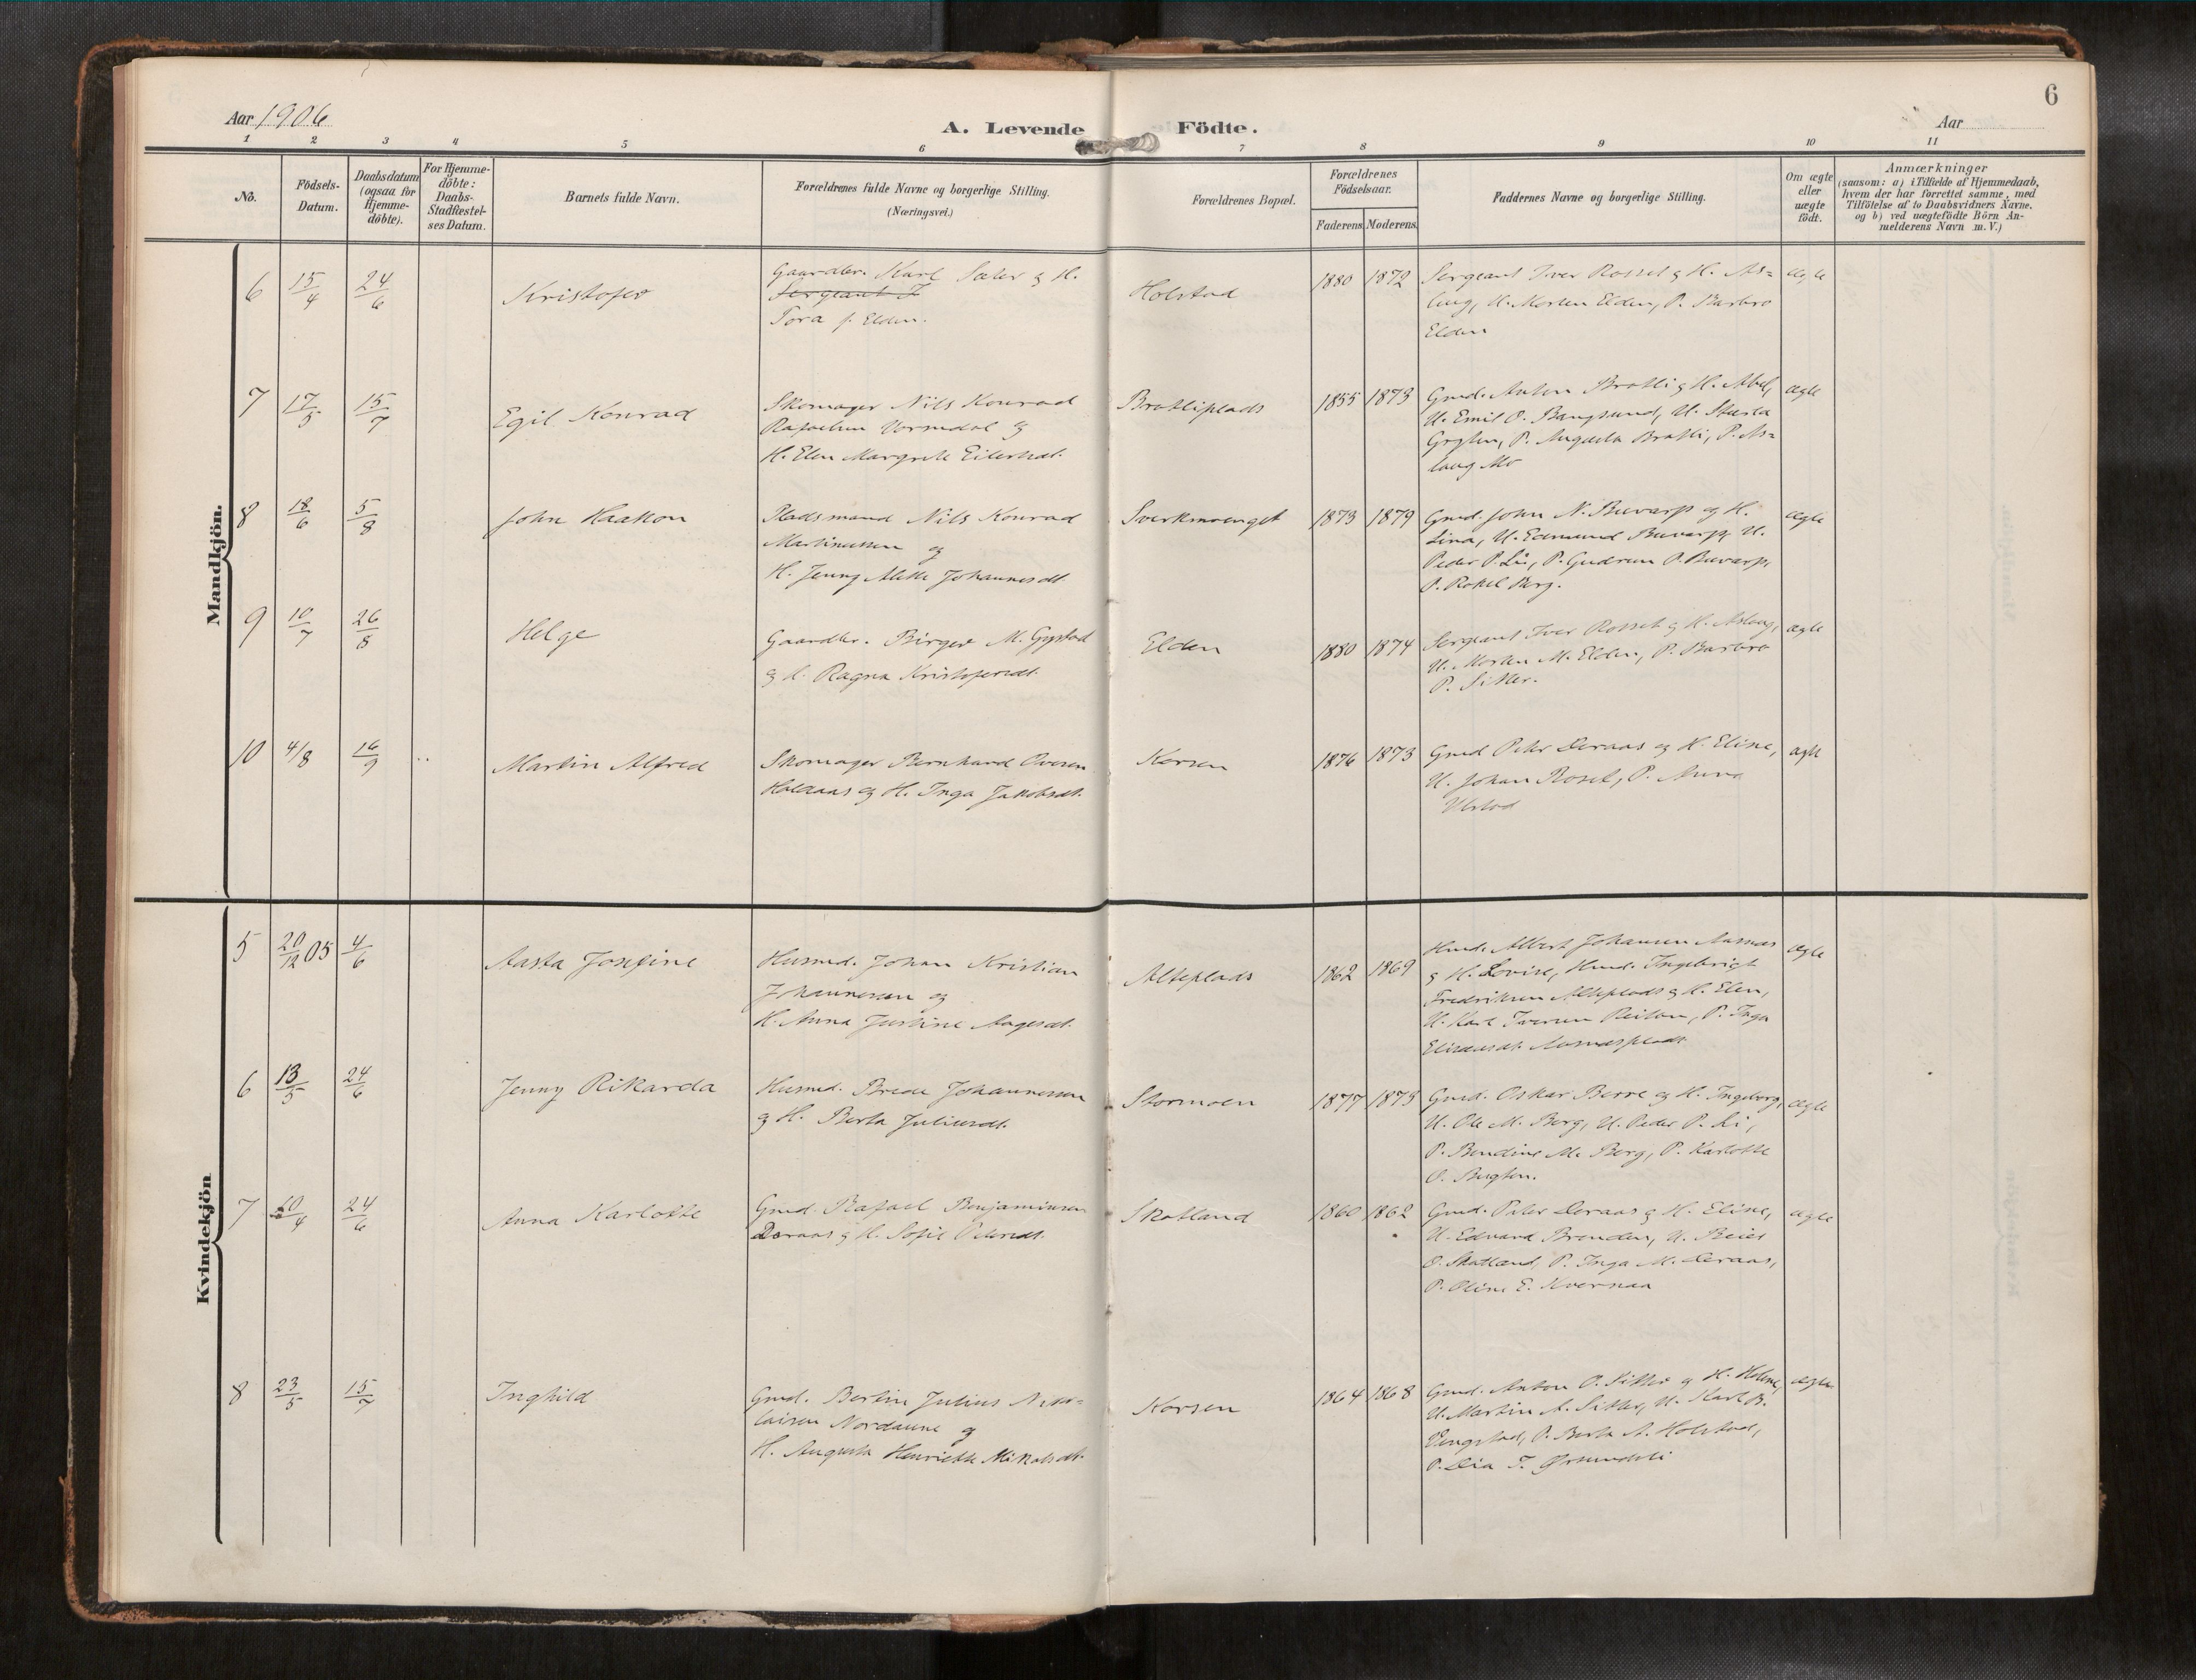 6
Aar 1906
A. Levende Födte.
Aar
1 2 3 4 5 6 7 8 9 10 11
No.
Födsels-
Datum.
Daabsdatum
(ogsaa for
Hjemme-
döbte).
For Hjemme-
döbte:
Daabs-
Stadfæstel-
ses Datum.
Barnets fulde Navn.
Forældrenes fulde Navne og borgerlige Stilling.
(Næringsvei.)
Forældrenes Bopæl.
Forældrenes
Födselsaar.
Faderens. Moderens.
Faddernes Navne og borgerlige Stilling.
Om ægte
eller
uægte
födt.
Anmærkninger
(saasom: a) i Tilfælde af Hjemmedaab,
hvem der har forrettet samme, med
Tilföielse af to Daabsvidners Navne,
og b) ved uægtefödte Börn An-
melderens Navn m. V.)
Mandkjön.
6
15/4
24/6
Kristofer
Gaardbr. Karl Sæter & H.
Sergeant I
Tora f. Elden.
Holstad
1880
1872
Sergeant Iver Rosset & H. As=
laug, U. Morten Elden, P. Barbro
Elden
ægte
7
17/5
15/7
Egil Konrad
Skomager Nils Konrad
Rafaelsen Vormdal &
H. Elen Margrete Eilertsdt.
Bratliplads
1855
1873
Gmd. Anton Bratli & H. Abel,
U. Emil O. Bangsund, U. Sturla
P. Augusta Bratli, P. As=
laug Mo
ægte
8
18/6
5/8
John Haakon
Pladsmand Nils Konrad
Martinussen og
H. Jenny Alette Johannesdt.
Sverkmoenget
1873
1879
Gmd. John N. Buvarp og H.
Lina, U. Edmund Buvarp, U.
Peder P. Li, P. Gudrun O. Buvarp,
P. Rakel Berg.
ægte
9
10/7
26/8
Helge
Gaardbr. Birger M. Gystad
& H. Ragna Kristofersdt.
Elden
1880
1874
Sergeant Iver Rosset & H. Aslaug,
U. Morten M. Elden, P. Barbro
P. Sitter.
ægte
10
4/8
16/9
Martin Alfred
Skomager Bernhard Ovesen
Holdaas og H. Inga Jakobsdt.
Korsen
1876
1873
Gmd Peter Deraas og H. Eline,
U. Johan Roset, P. Anna
ægte
Kvindekjön
5
20/12 05
4/6
Aasta Josefine
Husmd. Johan Kristian
Johannesen og
H. Anna Justine Aagesdt.
Alteplads
1862
1869
Hmd. Albert Johansen Aasnas
& H. Lovise, Hmd. Ingebrigt
Fredriksen Alteplads & H. Elen,
U. Karl Iversen Reitan, P. Inga
ægte
6
13/5
24/6
Jenny Rikarda
Husmd. Brede Johannessen
& H. Berta Juliusdt.
Stormoen
1877
1875
Gmd. Oskar Berre og H. Ingeborg,
U. Ole M. Berg, U. Peder P. Li,
P. Bendine M. Berg, P. Karlotte
O. Bugten.
ægte
7
20/4
24/6
Anna Karlotte
Gmd. Rafael Benjaminsen
Deraas & H. Sofie Pedersdt.
Skatland
1860
1862
Gmd. Peter Deraas & H. Eline,
U. Edvard Brenden, U. Beier
O. Skatland, P. Inga M. Deraas,
P. Oline E. Kvernaa
ægte
8
23/5
15/7
Inghild
Gmd. Bertin Julius Niko=
laisen Nordaune og
H. Augusta Henriette Mikalsdt.
Korsen
1864
1868
Gmd. Anton O. Sitter & H. Helene,
U. Martin A. Sitter, U. Karl B.
Vengstad, P. Berta A. Holstad,
P. Lia T.
ægte